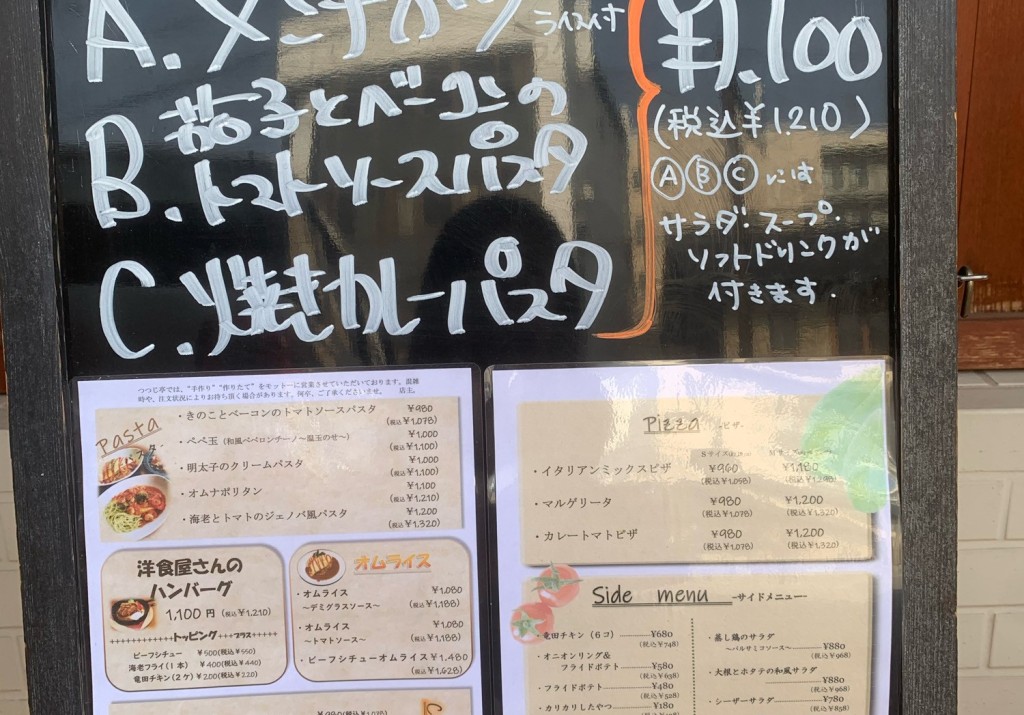 A. メンチカツ ライス付
B. 茄子とベーコンの
トマトソースパスタ
C. 焼きカレーパスタ
¥1.100
(税込¥1.210)
ⒶⒷⒸには
サラダ・スープ・
ソフトドリンクが
付きます.
つつじ亭では、“手作り”“作りたて”をモットーに営業させていただいております。混雑
時や、注文状況によりお待ち頂く場合があります。何卒、ご了承くださいませ。 店主。
Pasta
・きのことベーコンのトマトソースパスタ ¥980
(税込¥1,078)
・ペペ玉(和風ペペロンチーノ～温玉のせ～) ¥1,000
(税込¥1,100)
・明太子のクリームパスタ ¥1,000
(税込¥1,100)
・オムナポリタン ¥1,100
(税込¥1,210)
・海老とトマトのジェノバ風パスタ ¥1,200
(税込¥1,320)
洋食屋さんの
ハンバーグ
1,100円(税込¥1,210)
トッピング プラス
ビーフシチュー ¥500(税込¥550)
海老フライ(1本) ¥400(税込¥440)
竜田チキン(2ケ) ¥200(税込¥220)
オムライス
・オムライス ¥1,080
～デミグラスソース～ (税込¥1,188)
・オムライス ¥1,080
～トマトソース～ (税込¥1,188)
・ビーフシチューオムライス ¥1,480
(税込¥1,628)
¥980(税込¥1,078)
Pizza -ピザ-
・イタリアンミックスピザ ¥960 ¥1,180
(税込¥1,058) (税込¥1,298)
・マルゲリータ ¥980 ¥1,200
(税込¥1,078) (税込¥1,320)
・カレートマトピザ ¥980 ¥1,200
(税込¥1,078) (税込¥1,320)
Side menu -サイドメニュー-
・竜田チキン(6コ) ¥680
(税込¥748)
・オニオンリング&
フライドポテト ¥580
(税込¥638)
・フライドポテト ¥480
(税込¥528)
・カリカリしたやつ ¥180
・蒸し鶏のサラダ
～バルサミコソース～ ¥880
(税込¥968)
・大根とホタテの和風サラダ
¥880
(税込¥968)
・シーザーサラダ ¥780
(税込¥858)